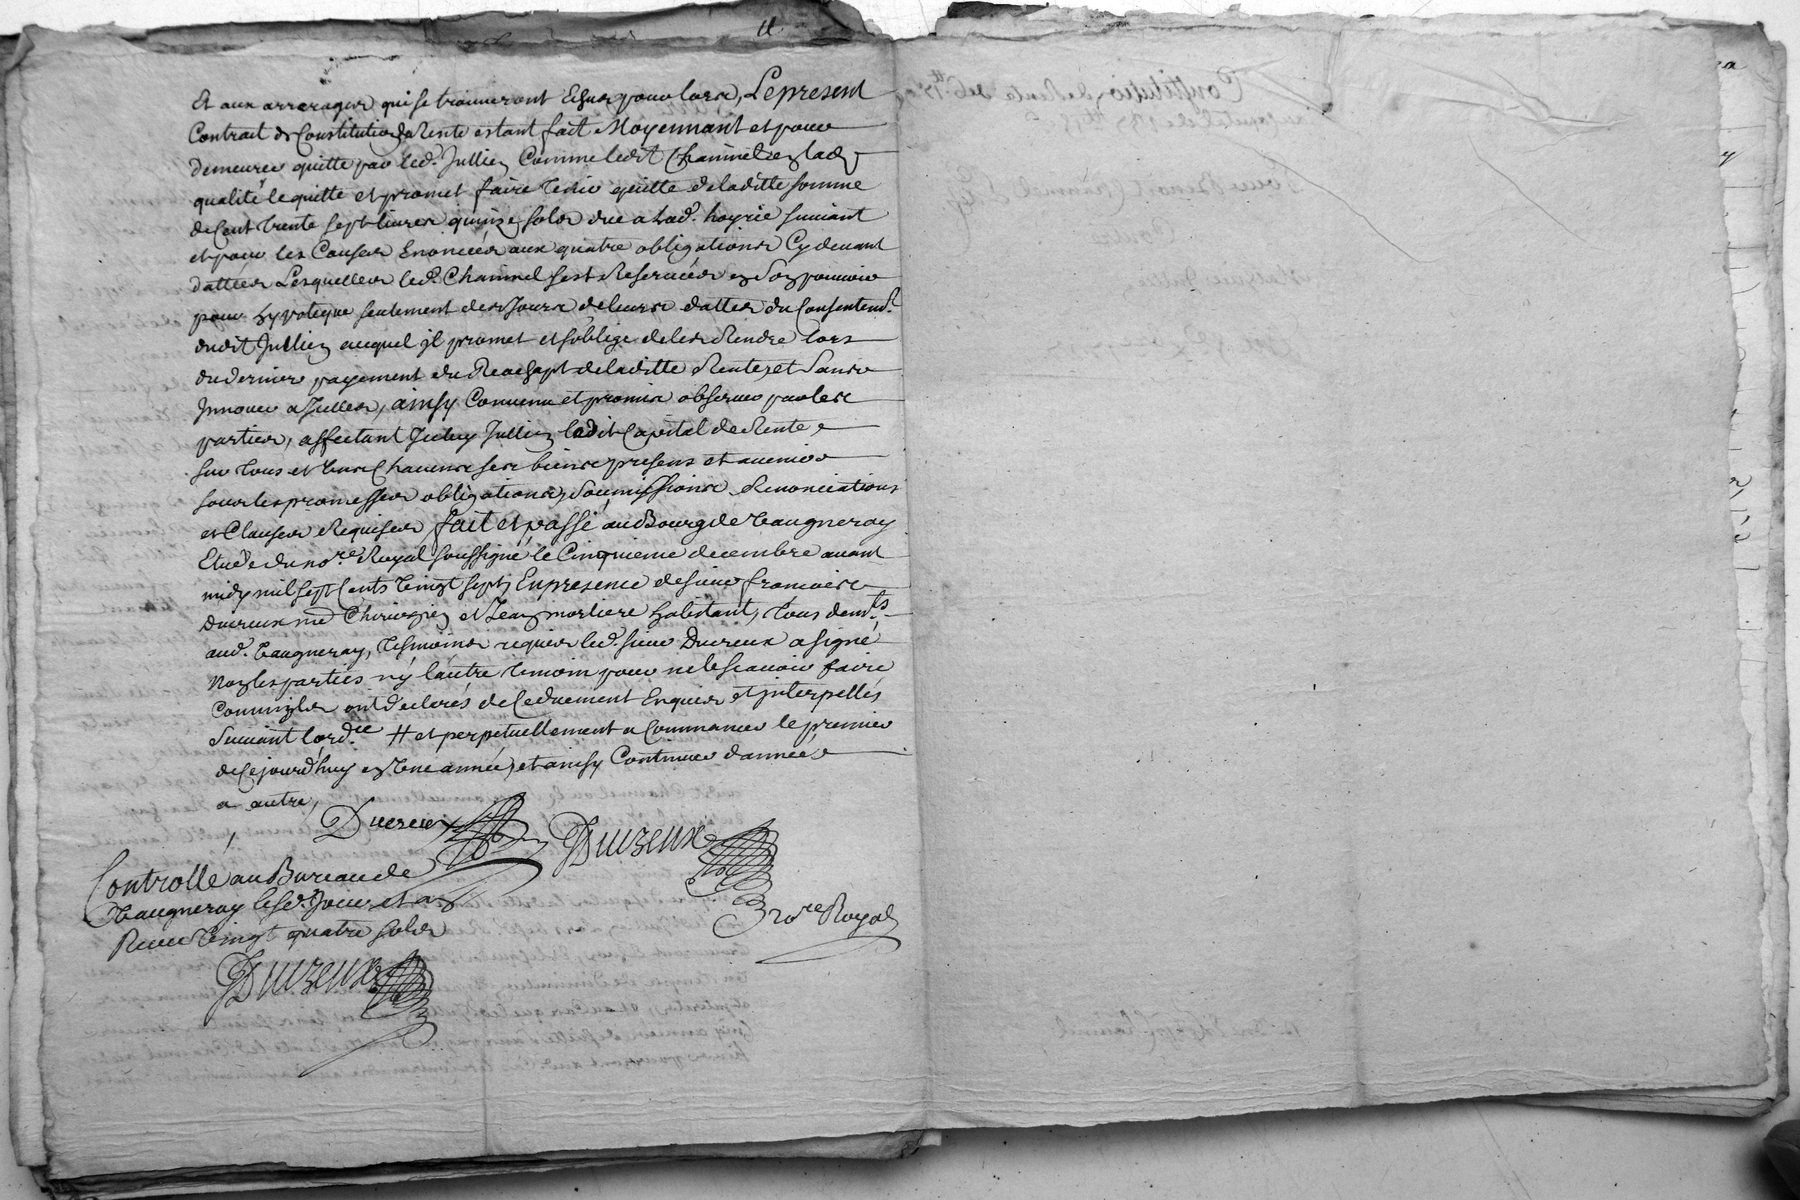 Et aux arrerages qui se trouveront Echus pour lors, Le present
Contrat de Constitution de Rente estant fait Moyennant et pour
demeurer quitte par led. Jullien Comme ledit Chammel en lad.
qualité le quitte et promet faire tenir quitte de laditte somme
de Cent trente sept livres quinze sols due a lad. hoyrie suivant
et pour les Causes Enoncées aux quatre obligations Cy devant
dattées Lesquelles led. Chammel sest Reservées en son pouvoir
pour hypoteque seulement des Jours de leurs dattes du Consentemt.
dudit Jullien auquel jl promet et soblige de les Rendre lors
du dernier payement du Reachapt de laditte Rente, et Sans
Innover a Jcelles, ainsy Convenu et promis observer par les
parties, affectant Jceluy Jullien ledit Capital de Rente
sur tous et uns Chacuns ses biens presens et avenir
sous les promesses obligations, Soumissions Renonciations
et Clauses Requises fait et passé au Bourg de Vaugneray
Etude du nore. Royal soussigné le Cinquieme decembre avant
midy mil sept Cents vingt sept, En presence de sieur francois
Ducreux me Chirurgien et Jean mortiere habitant, tous demts.
aud. Vaugneray, tesmoins requis led. sieur Ducreux a signé
Non les parties ny lautre temoin pour ne le scavoir faire
Comm'jls ont declarés de Ce duement Enquis et jnterpellés
suivant lordce. # et perpetuellement a Commancer le premier
de Ce jourd'huy en une année, et ainsy Continuer d'année
a autre,
Ducreux Ducreux
nore Royal
Controllé au Bureau de
Vaugneray lesd. Jour et an
Receu vingt quatre sols
Ducreux